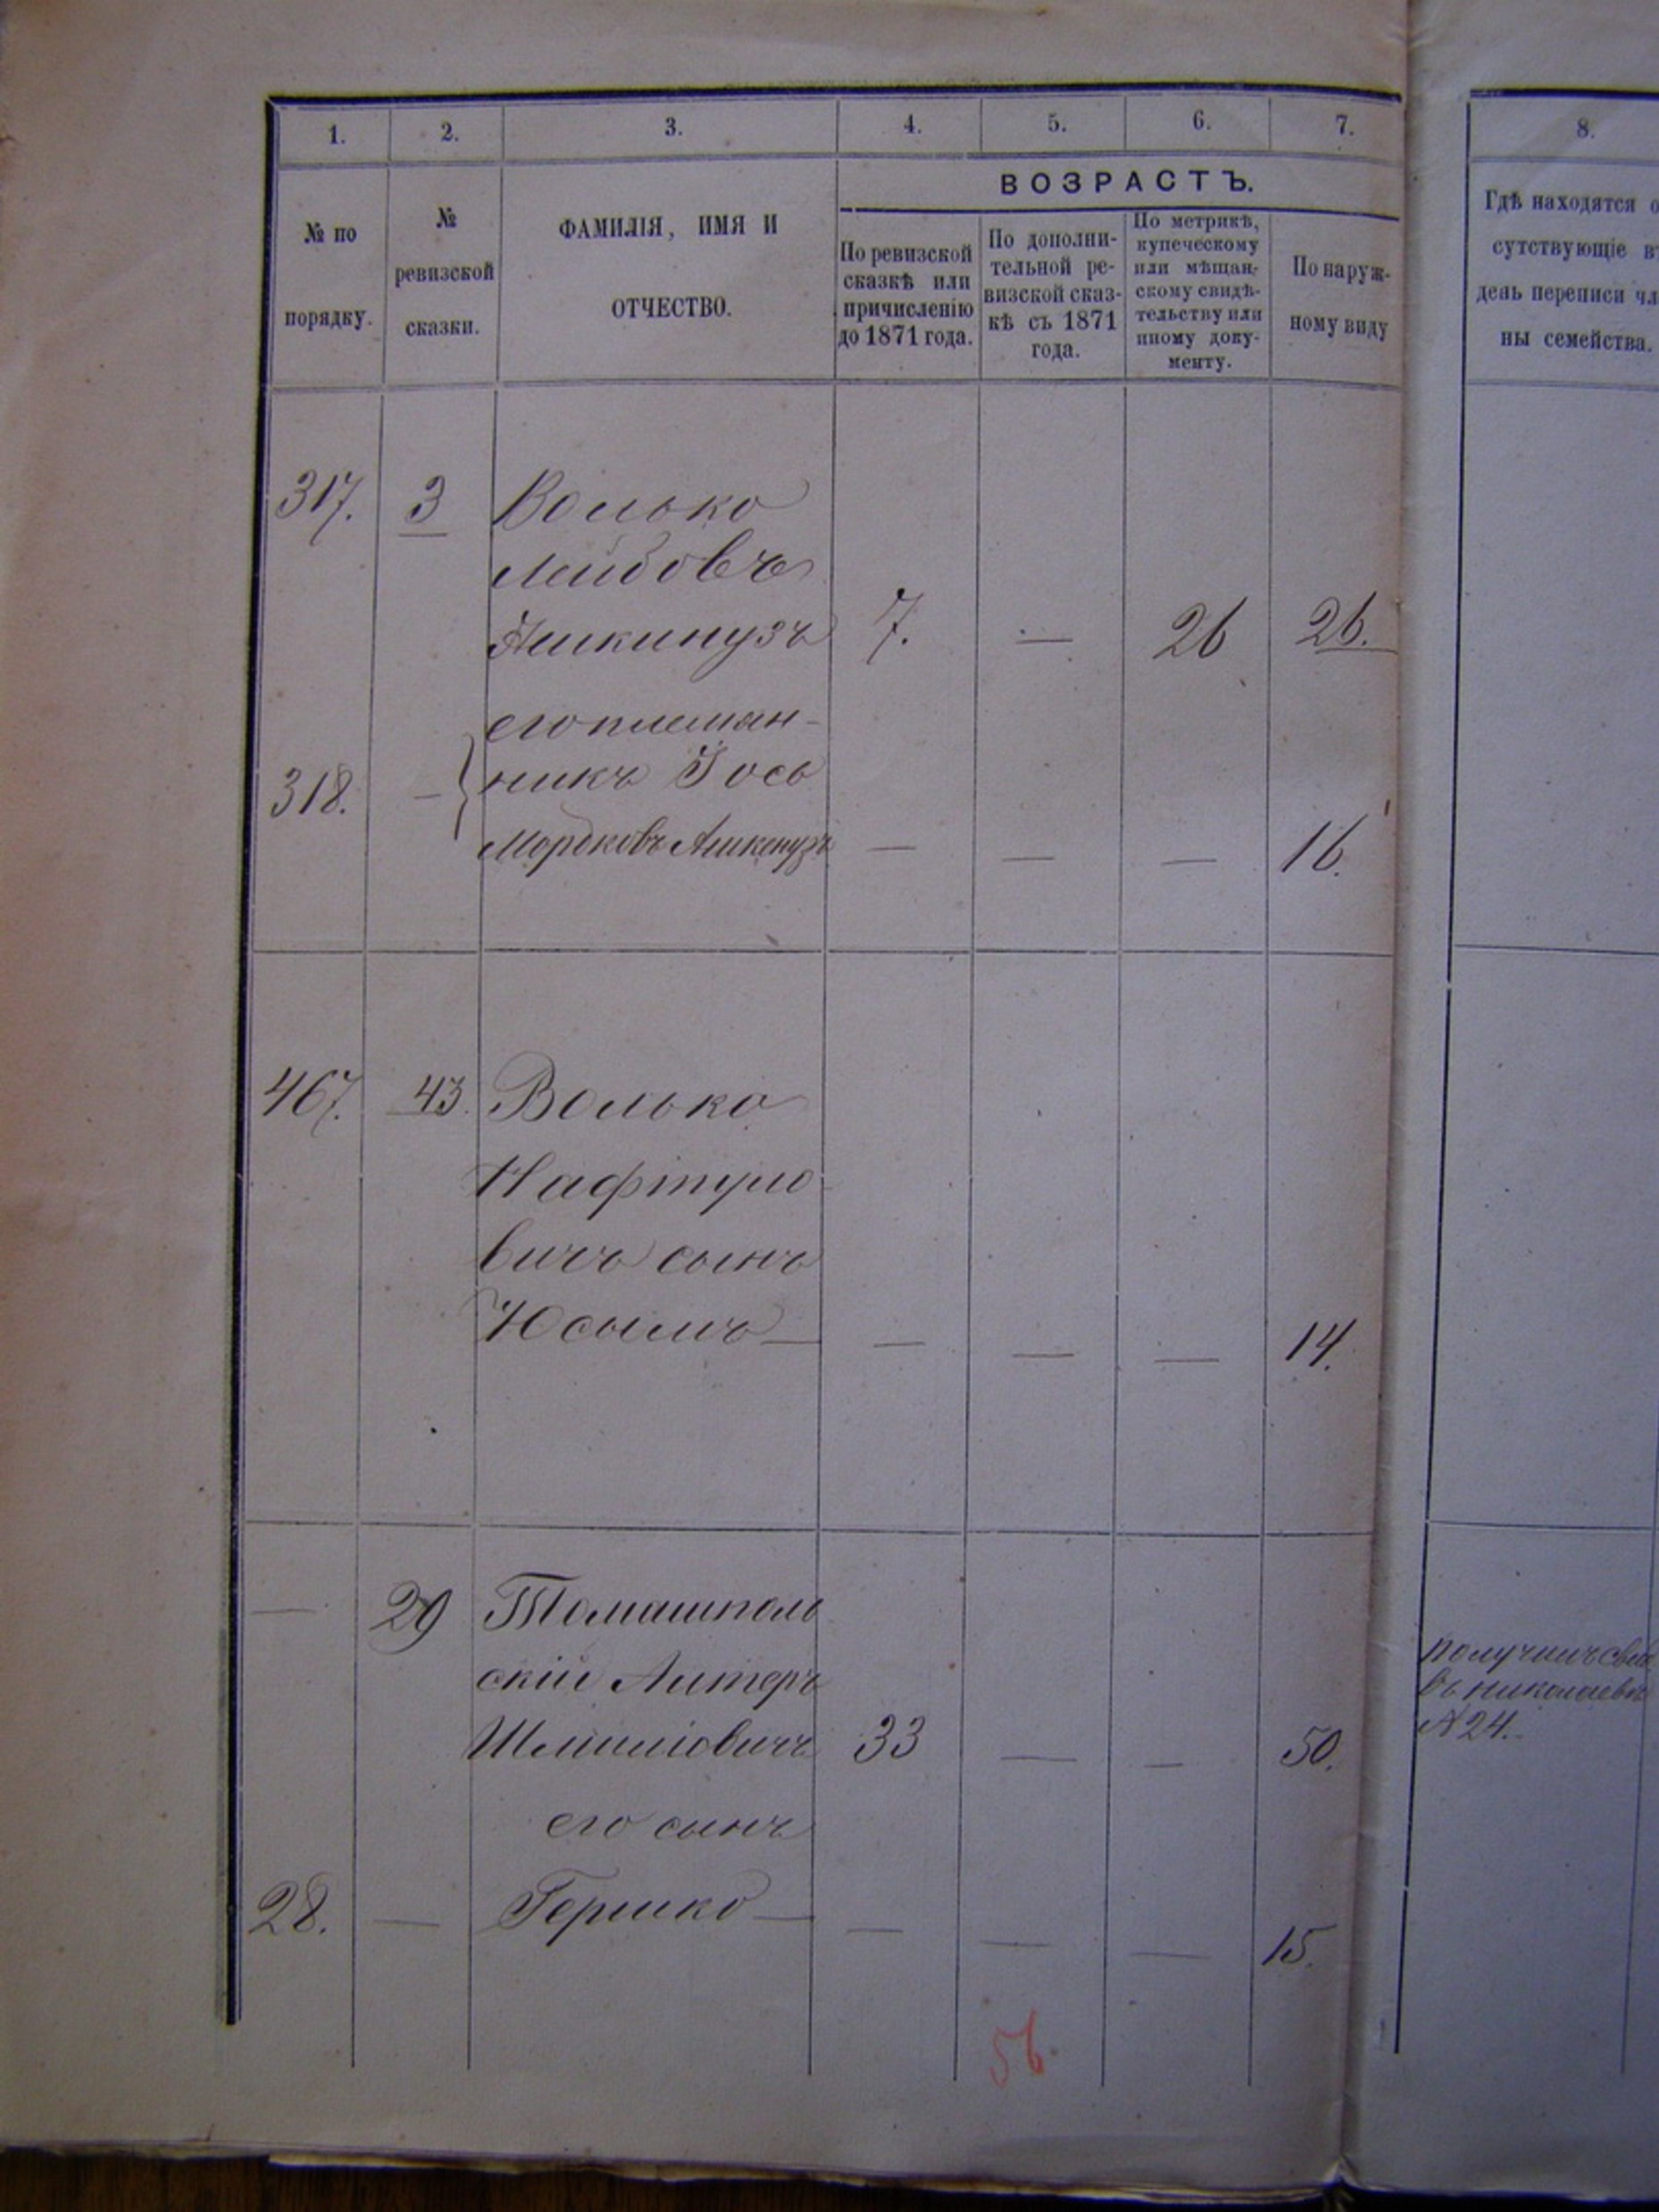 1. 2. 3. 4. 5. 6. 7. 8.
ВОЗРАСТЪ.
№ по
порядку.
№
ревизской
сказки.
ФАМИЛІЯ, ИМЯ И
ОТЧЕСТВО.
По ревизской
сказкѣ или
причисленію
до 1871 года.
По дополни-
тельной ре-
визской сказ-
кѣ съ 1871
года.
По метрикѣ,
купеческому
или мѣщан-
скому свидѣ-
тельству или
иному доку-
менту.
По наруж-
ному виду
Гдѣ находятся о
сутствующіе въ
день переписи чл
ны семейства.
317. 3 Волько
Лейбовъ
Ашкинузъ 7. — 26 26.
его племян-
318. — никъ Іось
Мордковъ Ашкенузъ — — — 16.
467. 43. Волько
Нафтуло-
вичъ сынъ
Юсымъ — — — — 14.
— 29 Томашполь
скій Алтеръ
Шліомовичъ 33 — — 50.
его сынъ
28. — Гершко — — — — 15.
получилъ
въ Николаевѣ
№ 24.
56